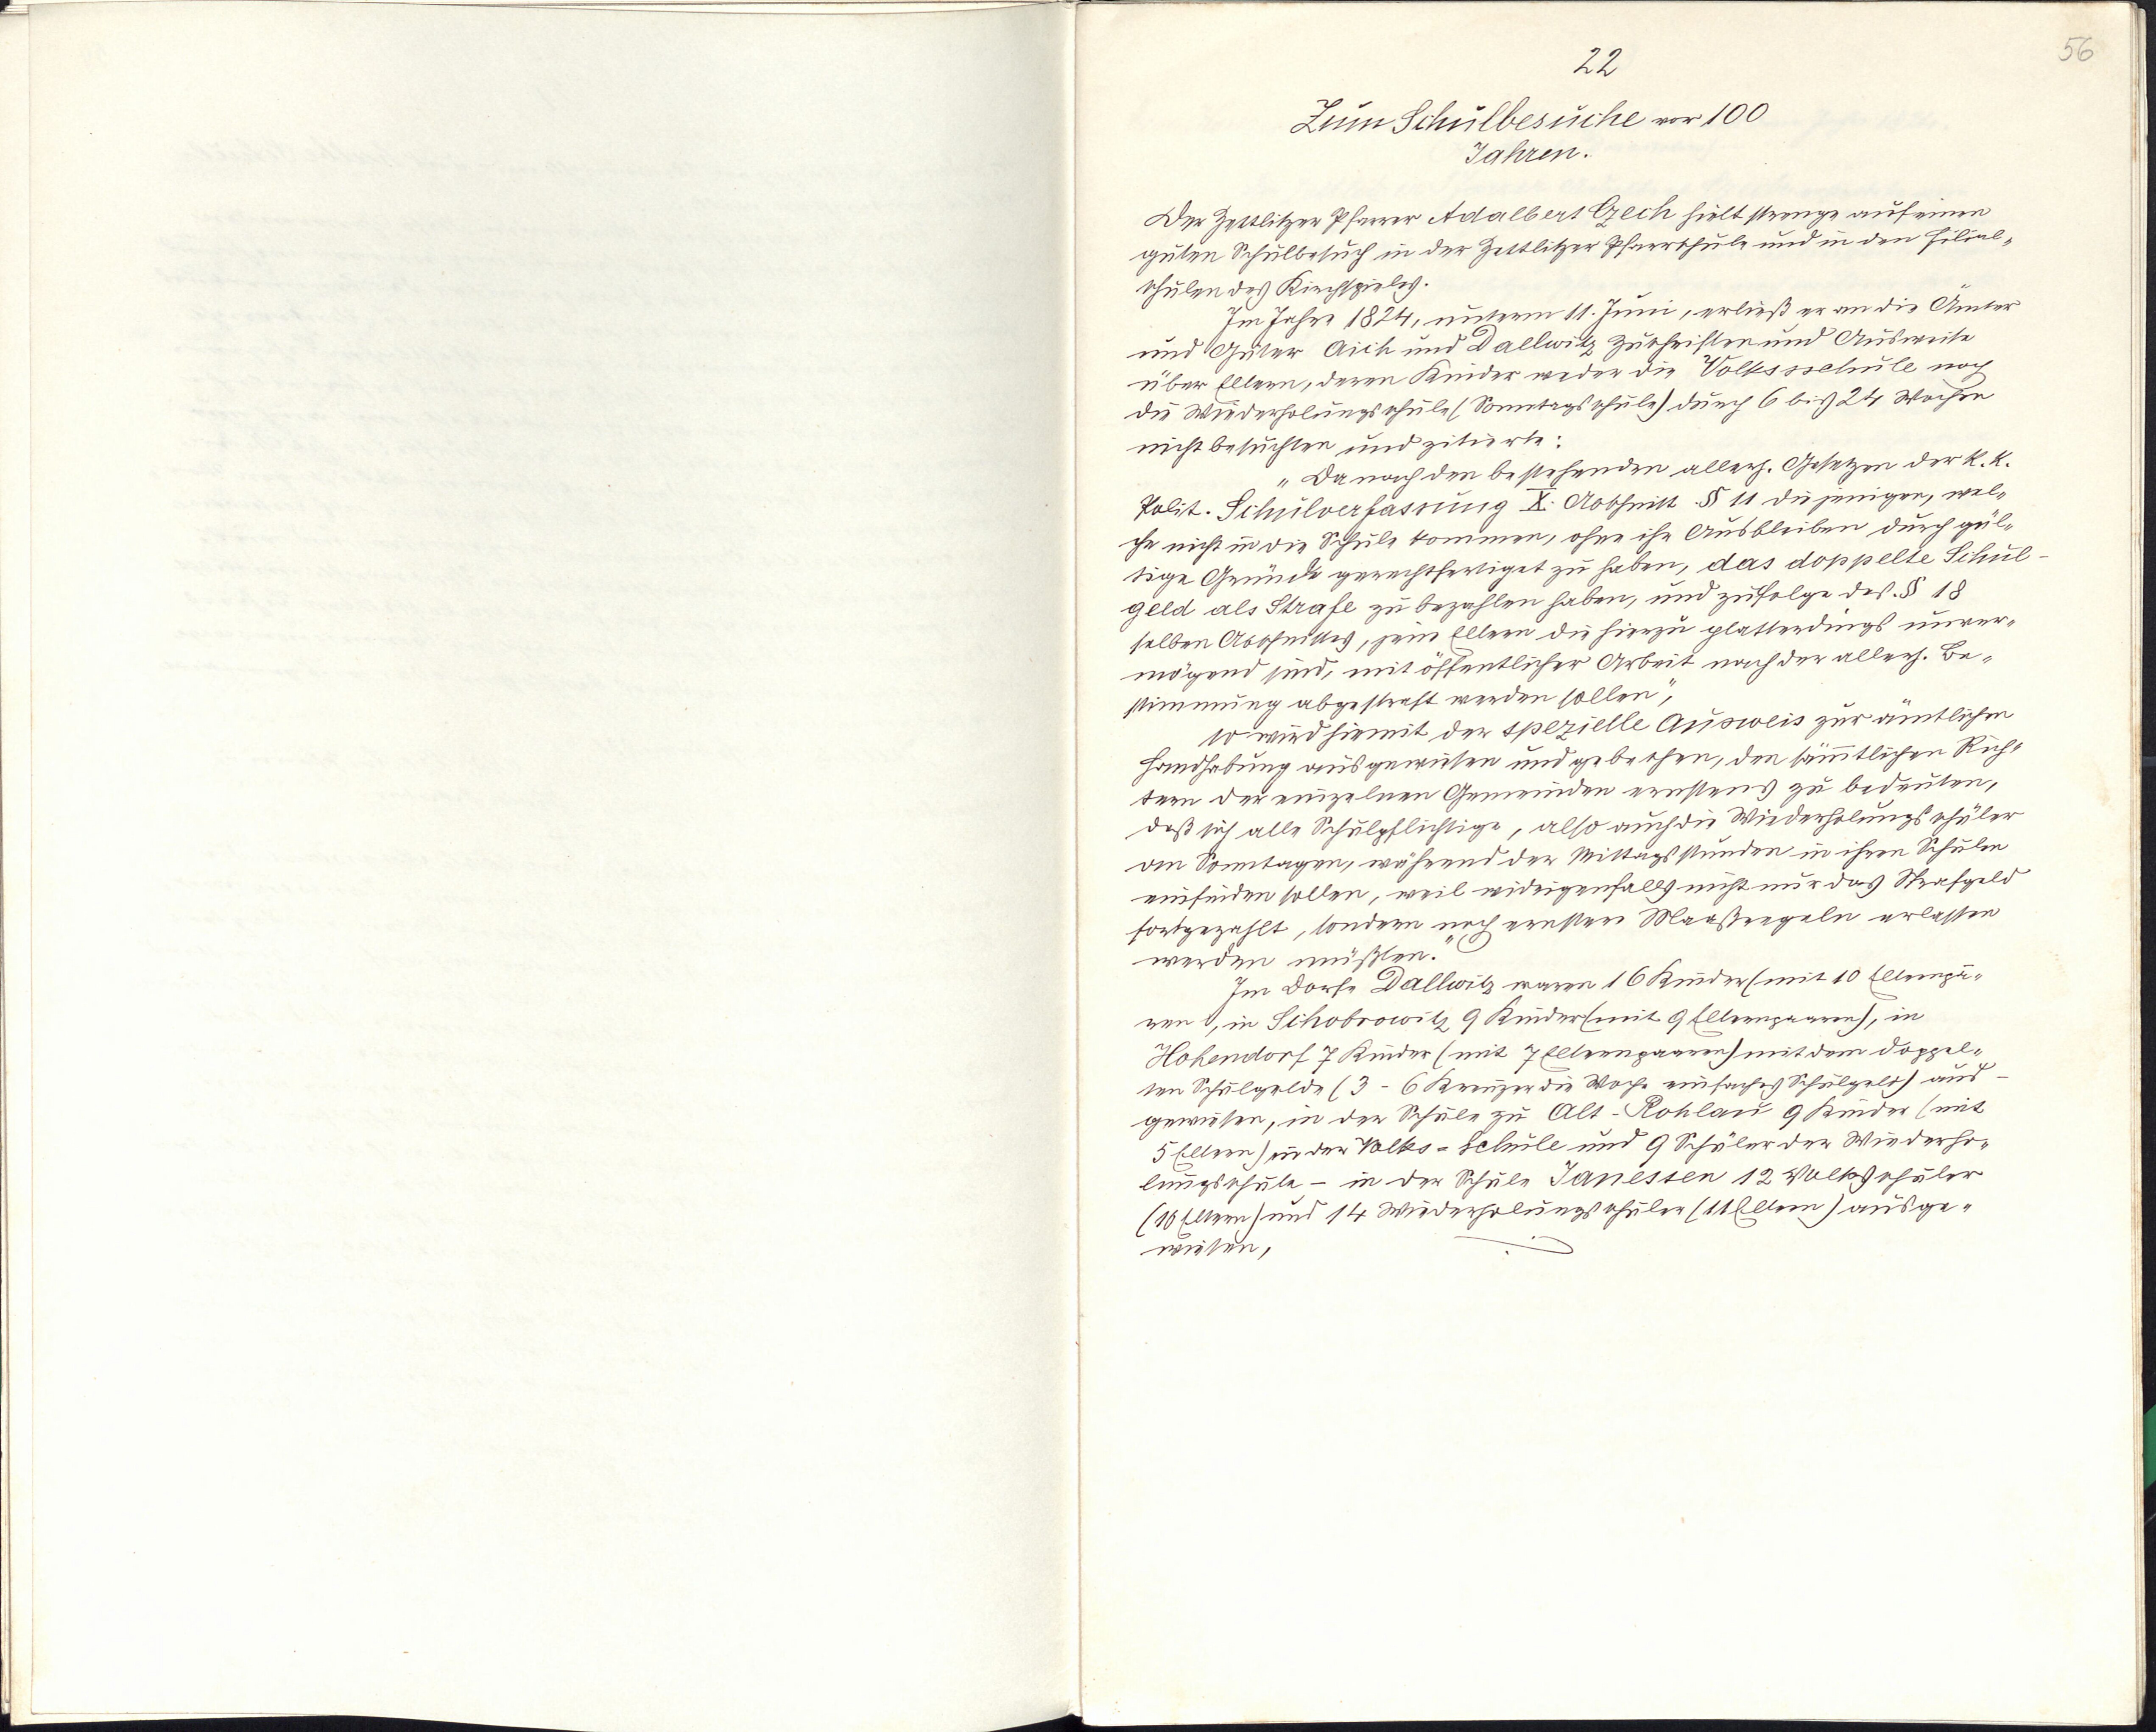 56
22
Zum Schulbesuche vor 100
Jahren.
Der Zettlitzer Pfarrer Adalbert Czech hielt strenge auf einen
guten Schulbesuch in der Zettlitzer Pfarrschule und in den Filial-
schulen des Kirchspieles.
Im Jahre 1824, unterm 11. Juni, erließ er an die Ämter
und Güter Aich und Dallwitz Zuschriften und Ausweise
über Eltern, deren Kinder weder die Volksschule noch
die Wiederholungsschule (Sonntagsschule) durch 6 bis 24 Wochen
nicht besuchten und zitierte:
"Da nach den bestehenden allerh. Gesetzen der k. k.
Polit. Schulverfassung X. Abschnitt § 11 diejenigen, wel-
che nicht in die Schule kommen, ohne ihr Ausbleiben durch gül-
tige Gründe gerechtfertiget zu haben, das doppelte Schul-
geld als Strafe zu bezahlen haben, und zufolge des § 18
selben Abschnittes, jene Eltern die hierzu platterdings unver-
mögend sind, mit öffentlicher Arbeit nach der allerh. Be-
stimmung abgestraft werden sollen",
so wird hiemit der spezielle Ausweis zur ämtlichen
Handhabung ausgewiesen und gebethen, den sämtlichen Rich-
tern der einzelnen Gemeinden ernstens zu bedeuten,
daß sich alle Schulpflichtige, also auch die Wiederholungsschüler
an Sonntagen, während der Mittagsstunden in ihren Schulen
einfinden sollen, weil widrigenfalls nicht nur das Strafgeld
fortgezahlt, sondern noch ernstere Maaßregeln erlassen
werden müßten."
Im Dorfe Dallwitz waren 16 Kinder (mit 10 Elternpa-
ren), in Schobrowitz 9 Kinder (mit 9 Elternpaaren), in
Hohendorf 7 Kinder (mit 7 Elternpaaren) mit dem doppel-
ten Schulgelde (3 - 6 Kreuzer die Woche einfaches Schulgeld) aus-
gewiesen, in der Schule zu Alt-Rohlau 9 Kinder (mit
5 Eltern) in der Volks-Schule und 9 Schüler der Wiederho-
lungsschule - in der Schule Janessen 12 Volksschüler
(10 Eltern) und 14 Wiederholungsschüler (11 Eltern) ausge-
wiesen,